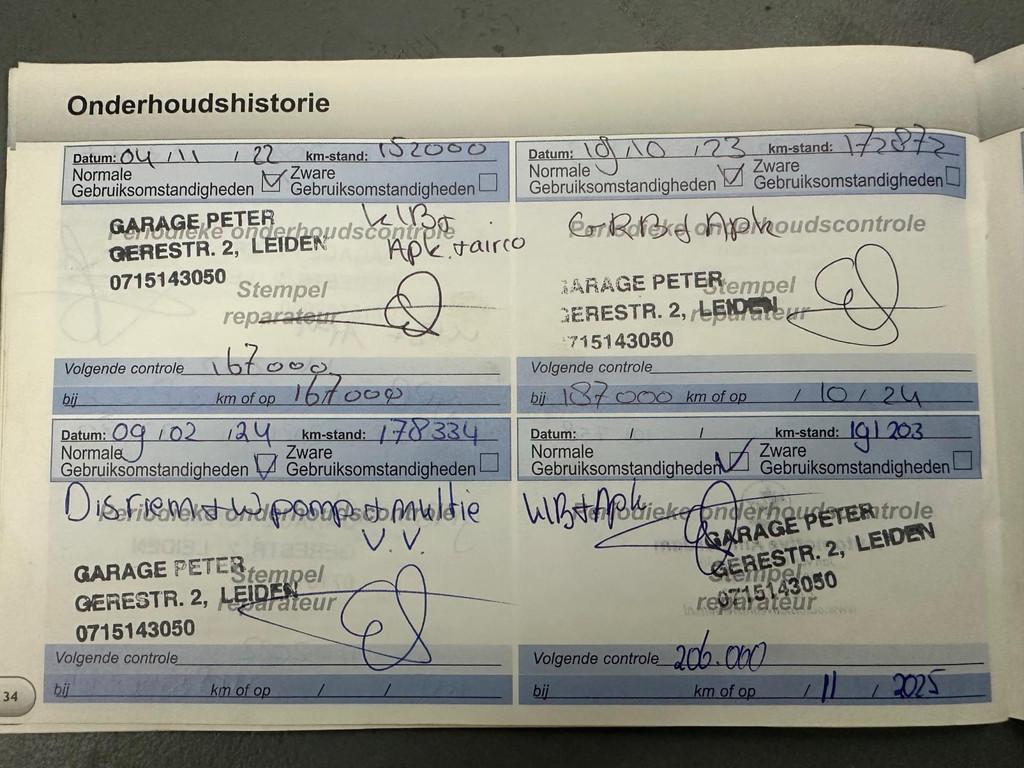 Onderhoudshistorie
Datum: 04 / 11 / 22 km-stand: 152000
Normale Gebruiksomstandigheden
Zware Gebruiksomstandigheden
KlB+
Apk + airco
Periodieke onderhoudscontrole
GARAGE PETER
GERESTR. 2, LEIDEN
0715143050
Stempel
reparateur
Volgende controle 167000
bij km of op 167000
Datum: 19 / 10 / 23 km-stand: 172872
Normale Gebruiksomstandigheden
Zware Gebruiksomstandigheden
GRB+ Apk
Periodieke onderhoudscontrole
GARAGE PETER
GERESTR. 2, LEIDEN
715143050
Stempel
reparateur
Volgende controle
bij 187000 km of op / 10 / 24
Datum: 09 / 02 / 24 km-stand: 178334
Normale Gebruiksomstandigheden
Zware Gebruiksomstandigheden
Disriem + w pomp + multie
V.V.
Periodieke onderhoudscontrole
GARAGE PETER
GERESTR. 2, LEIDEN
0715143050
Stempel
reparateur
Volgende controle
bij km of op / /
Datum: / / km-stand: 191203
Normale Gebruiksomstandigheden
Zware Gebruiksomstandigheden
KlB+Apk
Periodieke onderhoudscontrole
GARAGE PETER
GERESTR. 2, LEIDEN
0715143050
Stempel
reparateur
Volgende controle 206.000
bij km of op / 11 / 2025
34